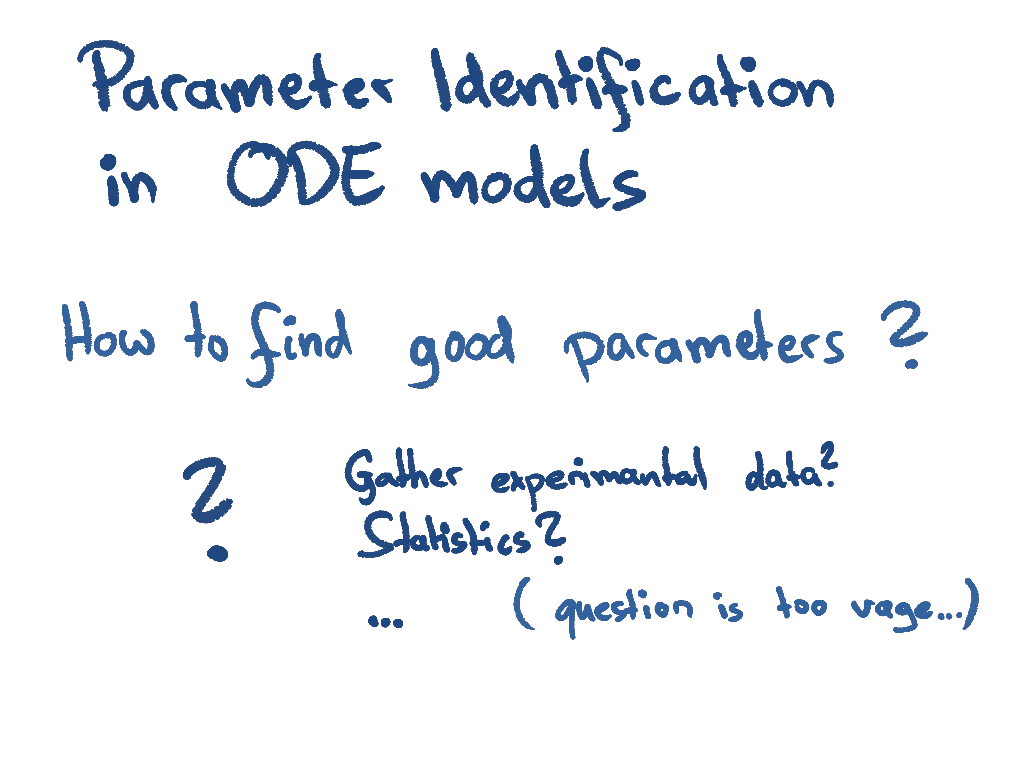 Parameter Identification
in ODE models
How to find good parameters ?
?
Gather experimantal data?
Statistics?
... ( question is too vage...)